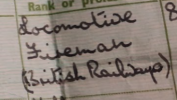 Rank or prof
Locomotive
Fireman
(British Railways)